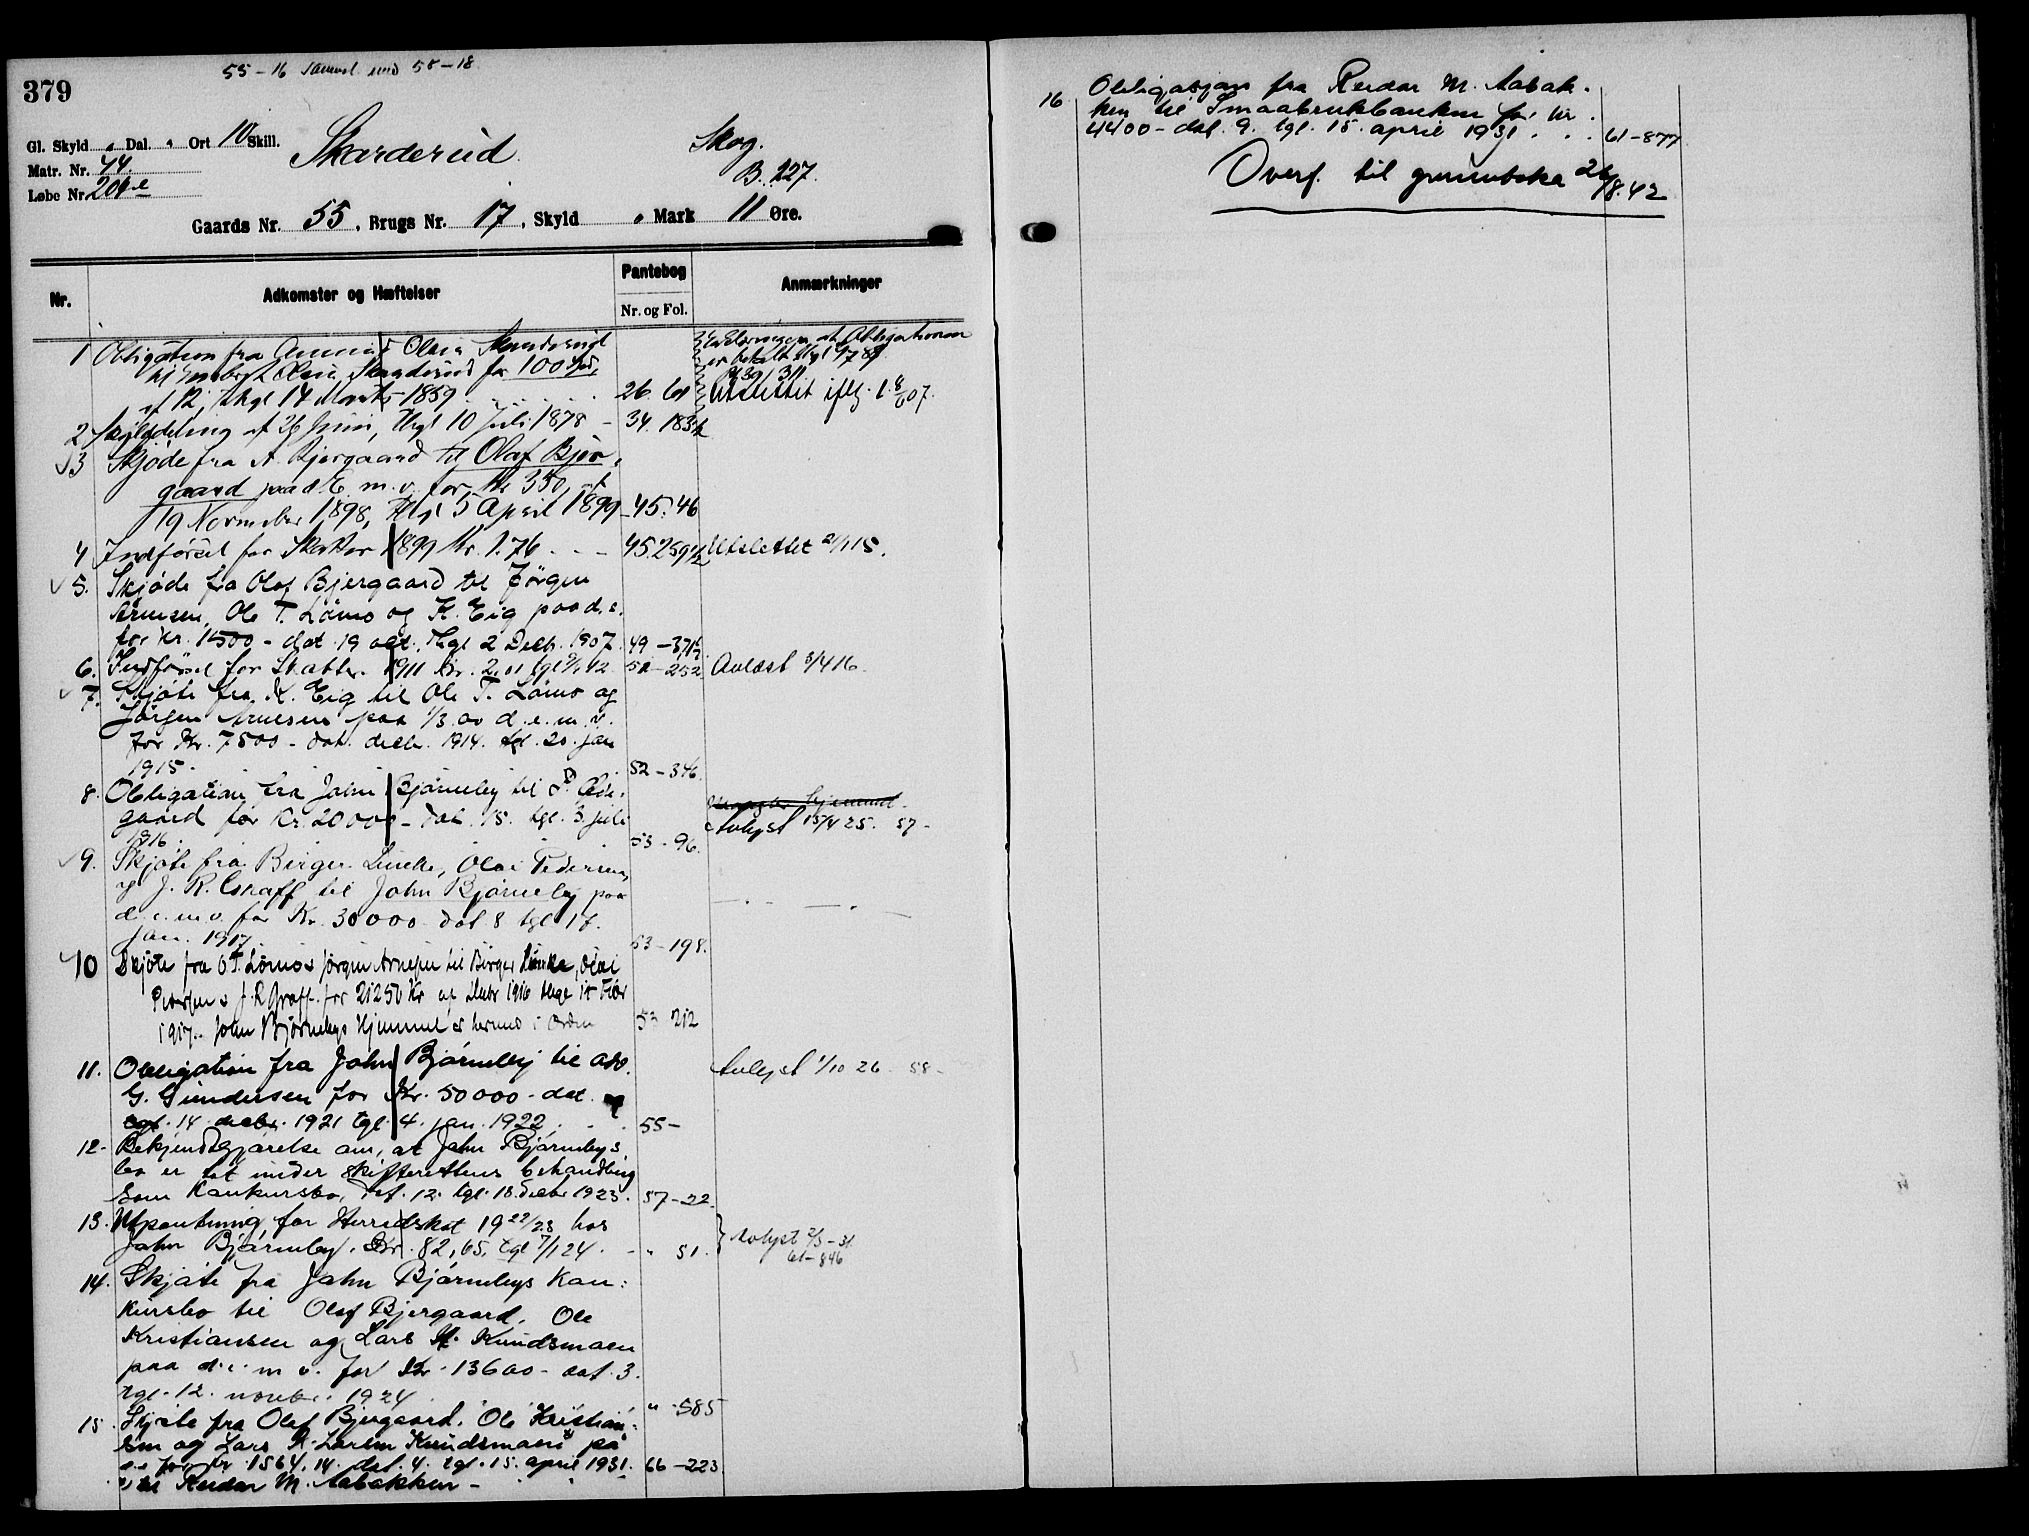 379
55-16 sammel med 55-18
Gl. Skyld " Dal. " Ort 10 Skill.
Matr. Nr. 44.
Løbe Nr. 201e
Skarderud.
Skog.
B. 227.
Gaards Nr. 55, Brugs Nr. 17, Skyld " Mark 11 Øre.
Nr. Adkomster og Hæftelser Pantebog Nr. og Fol. Anmærkninger
1 Obligation fra Olsen Skarderud
til Skarderud for 100 Spd.
af 12, thgl 14 Marts 1859 26. 61
er betalt thgl
Utslettet iflg.
2 Skylddeling af 26 Juni, Thgl 10 Juli 1878 - 34. 183
3 Skjøde fra A. Bjergaard til Olaf Bjer-
gaard paa d. E. m. v. for Kr 350, af
19 November 1898, Thgl 5 April 1899 - 45. 46
4 Indførsel for Skatter 1899 Kr. 1.76 - - - 45 259½ Utslettet
5. Skjøde fra Olaf Bjergaard til Jørgen
Arnesen, Ole T. Lømo og K. Eig paa d. e.
for kr. 1500 - dat. 19 okt. Thgl 2 Decb. 1907. 49 - 371½
6. Indførsel for Skatter 1911 kr. 2.11 tgl 52 - 252 Avlæst 3/4 16.
7. Skjøte fra K. Eig til Ole T. Lømo og
Jørgen Arnesen paa 1/3 av d. e. m. v.
for Kr. 7500 - dat. decbr. 1914. tgl. 20. jan
1915. 52 - 346.
8. Obligation fra John Bjørneby til
gaard for Kr. 20000 - dat. 15. tgl. 3. juli
1916. 53 - 96.
Avlyst 15/4 25. 57 -
9. Skjøte fra Birger Lincke, Olai Pedersen
og J. R. Graff til John Bjørneby paa
d. e. m. v. for Kr. 30000 dat 8 tgl 17.
jan. 1917 53 - 198.
10 Skjøte fra O. T. Lømo & Jørgen Arnesen til Birger Lincke, Olai
Pedersen & J. R. Graff. for 21250 Kr af Decbr 1916 thgl 15 Febr
1917. John Bjørnebys Hjemmel er hermed i Orden 53 212
11. Obligation fra John Bjørneby til adv.
G. Gundersen for Kr. 50000 - dat.
tgl. 14 decbr. 1921 tgl. 4. jan. 1922. 55 -
Avlyst 1/10 26 58 -
12 - Bekjendtgjørelse om, at John Bjørnebys
bo er tat under skifterettens behandling
som konkursbo, dat. 12. tgl. 18. decbr 1923. 57 - 22.
13. Utpantning for Herredskat 1922/23 hos
John Bjørneby. Kr. 82,65. tgl 7/1 24. - " 51.
Avlyst 2/3 - 31.
61 - 846
14. Skjøte fra John Bjørnebys Kon-
kursbo til Olaf Bjergaard, Ole
Kristiansen og Lars K. Knudsmoen
paa d. e. m v. for Kr. 13600 - dat. 3.
tgl. 12. novbr. 1924 " - 585
15. Skjøte fra Olaf Bjergaard, Ole Kristian-
sen og Lars K. Larsen Knudsmoen på
d. e. for kr. 1564.14. dat. 4. tgl. 15. april 1931. 66 - 223
til Reidar M. Aabakken -
16 Obligasjon fra Reidar M. Aabak-
ken til Smaabrukbanken for kr.
4400 - dat. 9. tgl. 15. april 1931. . . 61 - 877
Overf. til grunnboka 26/8.42